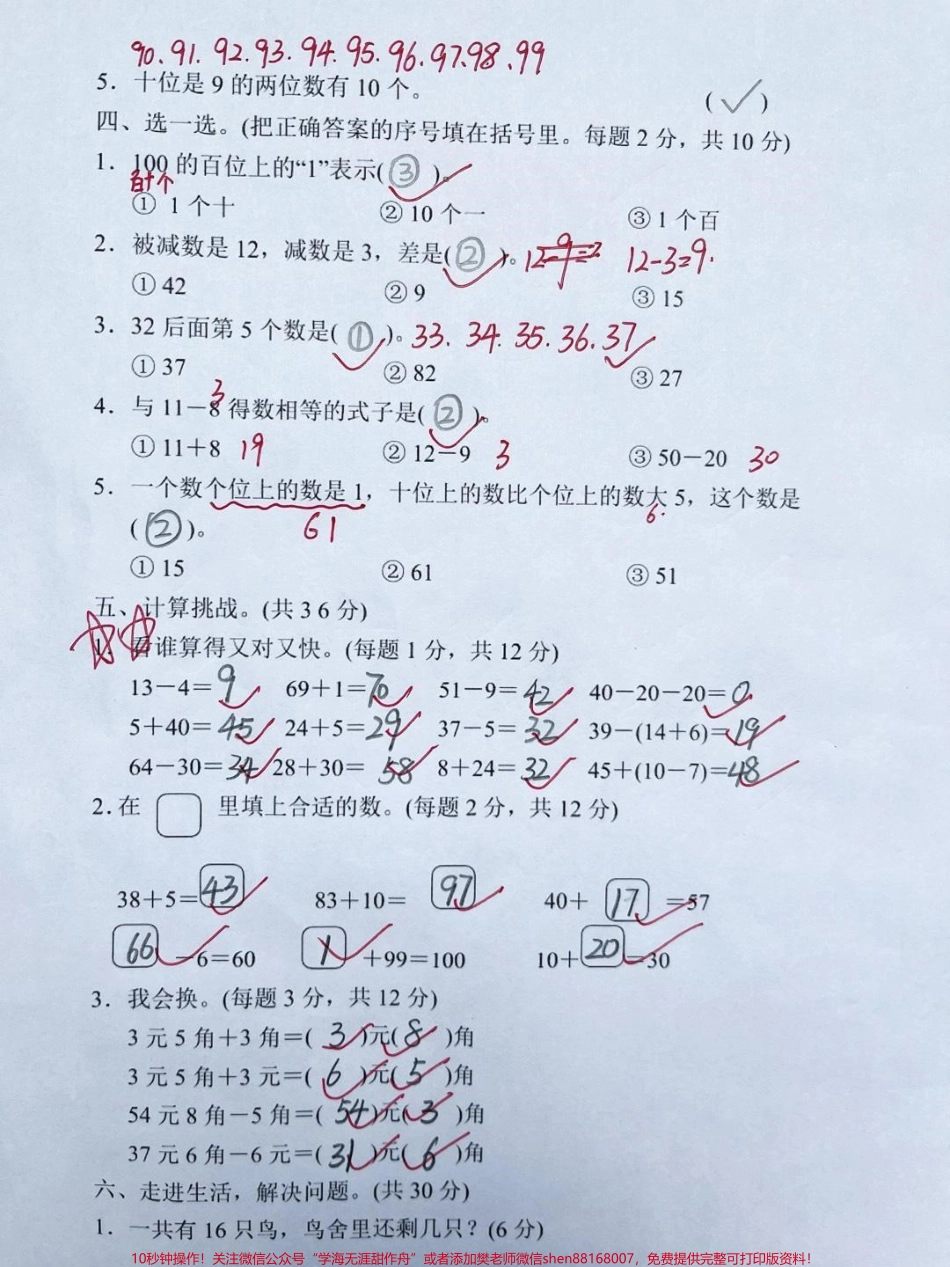 90.91.92.93.94.95.96.97.98.99
5. 十位是 9 的两位数有 10 个。 (✓)
四、选一选。(把正确答案的序号填在括号里。每题 2 分，共 10 分)
1. 100 的百位上的“1”表示( ③ )。
百十个
① 1 个十 ② 10 个一 ③ 1 个百
2. 被减数是 12，减数是 3，差是( ② )。 12-3=9.
① 42 ② 9 ③ 15
3. 32 后面第 5 个数是( ① )。 33. 34. 35. 36. 37
① 37 ② 82 ③ 27
3
4. 与 11－8 得数相等的式子是( ② )。
① 11＋8 19 ② 12－9 3 ③ 50－20 30
5. 一个数个位上的数是 1，十位上的数比个位上的数大 5，这个数是
( ② )。 61 6.
① 15 ② 61 ③ 51
五、计算挑战。(共 3 6 分)
1. 看谁算得又对又快。(每题 1 分，共 12 分)
13－4＝9 69＋1＝70 51－9＝42 40－20－20＝0
5＋40＝45 24＋5＝29 37－5＝32 39－(14＋6)＝19
64－30＝34 28＋30＝58 8＋24＝32 45＋(10－7)＝48
2.在 里填上合适的数。(每题 2 分，共 12 分)
38＋5＝43 83＋10＝ 97 40＋ 17 ＝57
66 －6＝60 1 ＋99＝100 10＋20＝30
3. 我会换。(每题 3 分，共 12 分)
3 元 5 角＋3 角＝( 3 )元( 8 )角
3 元 5 角＋3 元＝( 6 )元( 5 )角
54 元 8 角－5 角＝( 54 )元( 3 )角
37 元 6 角－6 元＝( 31 )元( 6 )角
六、走进生活，解决问题。(共 30 分)
1. 一共有 16 只鸟，鸟舍里还剩几只？(6 分)
10秒钟操作！关注微信公众号“学海无涯甜作舟”或者添加樊老师微信shen88168007，免费提供完整可打印版资料！